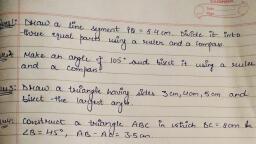 Draw a line segment PQ = 5.4cm. Divide it into
three equal parts using a ruler and a compass.
Make an angle of 105° and bisect it using a ruler
and a compass.
Draw a triangle having sides 3cm, 4cm, 5cm and
bisect the largest angle.
Construct a triangle ABC in which BC = 8cm
∠B = 45°, AB - AC = 3.5cm.